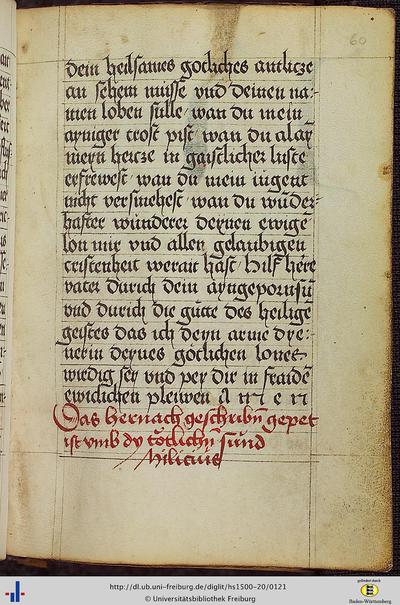 60
dein heilsames gotliches antlicze
an sehem müsse vnd deinen na-
men loben sülle wan du mein
ayniger trost pist wan du alay
meyn hercze in gaistlicher luste
erfrewest wan du mein iugent
nicht versmehest wan du wunder-
hafter wunderer deynen ewigē
lon mir vnd allen gelaubigen
cristenheit werait hast Hilf herre
vater durich dein ayngepornsū
vnd durich die gütte des heilige
geistes das ich deyn arme dye-
nerin deynes götlichen lones
wirdig sey vnd pey dir in fraide
ewiclichen pleiwen A m e n
Das hernach geschribn̄ gepet
ist vmb dy tötlichn̄ sünd
hilicius
http://dl.ub.uni-freiburg.de/diglit/hs1500-20/0121
© Universitätsbibliothek Freiburg
gefördert durch
Baden-Württemberg